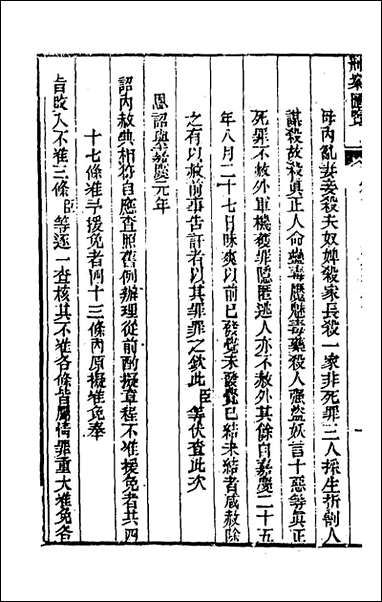 刑案匯覽
母內亂妻妾殺夫奴婢殺家長殺一家非死罪三人採生折割人
謀殺故殺真正人命蠱毒魘魅毒藥殺人強盜妖言十惡等真正
死罪不赦外軍機獲罪隱匿逃人亦不赦外其餘自嘉慶二十五
年八月二十七日昧爽以前已發覺未發覺已結未結者咸赦除
之有以赦前事告訐者以其罪罪之欽此臣等伏查此次
恩詔與嘉慶元年
詔內赦典相符自應查照舊例辦理從前酌擬章程不准援免者共四
十七條准予援免者四十三條內原擬准免奉
旨改入不准三條臣等逐一查核其不准各條皆屬情罪重大准免各